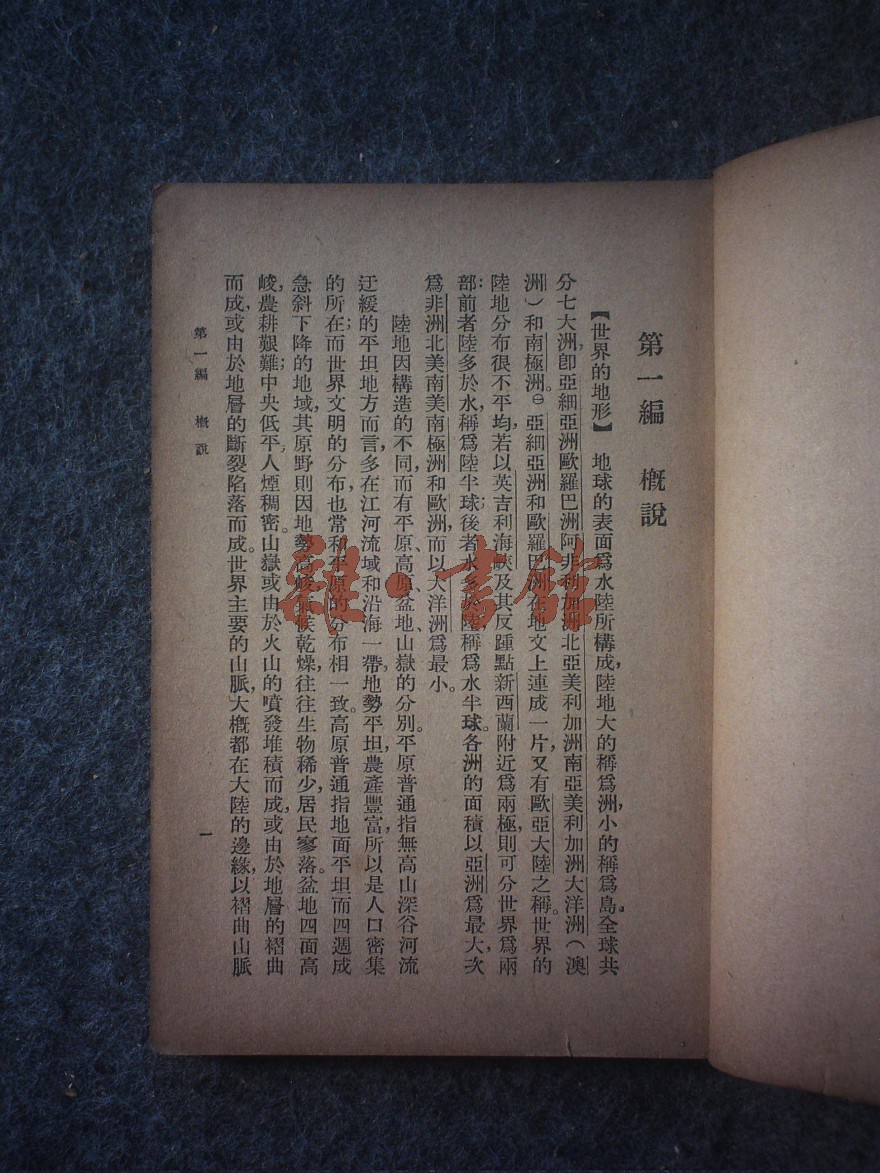 第一編　概說
【世界的地形】　地球的表面爲水陸所構成，陸地大的稱爲洲，小的稱爲島。全球共
分七大洲，卽亞細亞洲歐羅巴洲阿非利加洲北亞美利加洲南亞美利加洲大洋洲(澳
洲)和南極洲。㊀亞細亞洲和歐羅巴洲在地文上連成一片，又有歐亞大陸之稱。世界的
陸地分布很不平均，若以英吉利海峽及其反踵點新西蘭附近爲兩極，則可分世界爲兩
部：前者陸多於水，稱爲陸半球；後者水多於陸，稱爲水半球。各洲的面積以亞洲爲最大，次
爲非洲北美南美南極洲和歐洲，而以大洋洲爲最小。
陸地因構造的不同，而有平原、高原、盆地、山嶽的分別。平原普通指無高山深谷河流
迂緩的平坦地方而言，多在江河流域和沿海一帶，地勢平坦，農產豐富，所以是人口密集
的所在；而世界文明的分布，也常和平原的分布相一致。高原普通指地面平坦而四週成
急斜下降的地域，其原野則因地勢高峻，氣候乾燥，往往生物稀少，居民寥落。盆地四面高
峻，農耕艱難；中央低平，人煙稠密。山嶽或由於火山的噴發堆積而成，或由於地層的褶曲
而成，或由於地層的斷裂陷落而成。世界主要的山脈，大概都在大陸的邊緣，以褶曲山脈
第一編　概說
一
雜·書館